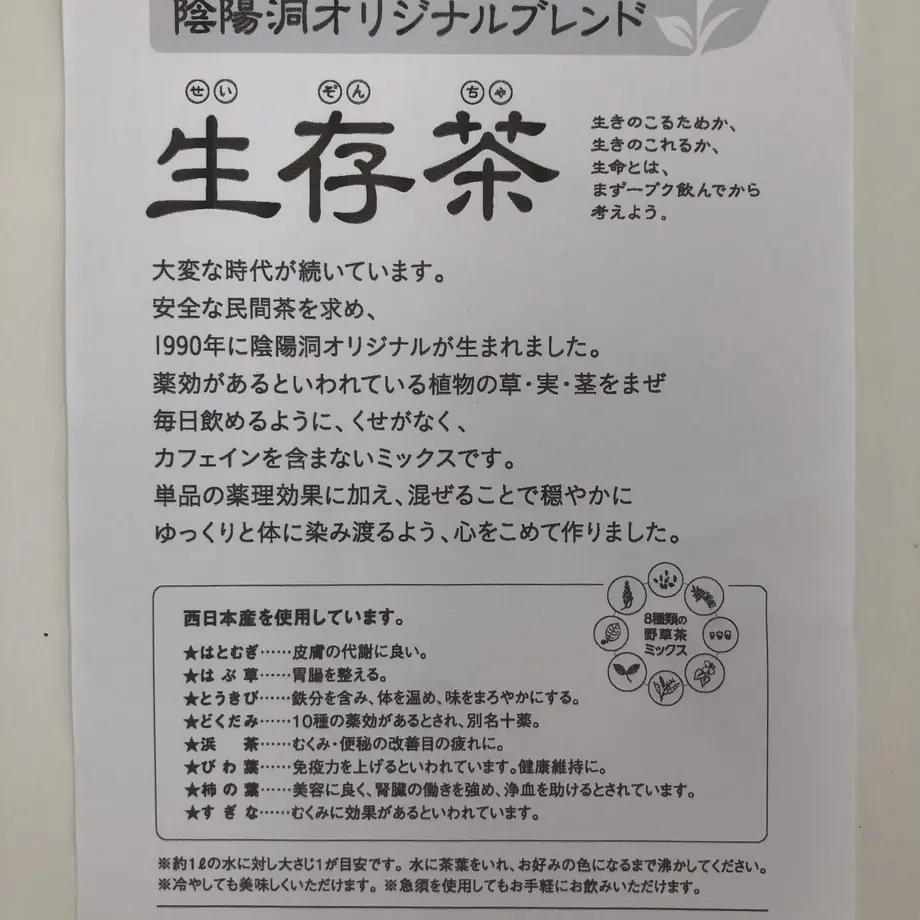 陰陽洞オリジナルブレンド
せいぞんちゃ
生存茶
生きのこるためか、
生きのこれるか、
生命とは、
まず一プク飲んでから
考えよう。
大変な時代が続いています。
安全な民間茶を求め、
1990年に陰陽洞オリジナルが生まれました。
薬効があるといわれている植物の草・実・茎をまぜ
毎日飲めるように、くせがなく、
カフェインを含まないミックスです。
単品の薬理効果に加え、混ぜることで穏やかに
ゆっくりと体に染み渡るよう、心をこめて作りました。
西日本産を使用しています。
8種類の
野草茶
ミックス
★はとむぎ……皮膚の代謝に良い。
★はぶ草……胃腸を整える。
★とうきび……鉄分を含み、体を温め、味をまろやかにする。
★どくだみ……10種の薬効があるとされ、別名十薬。
★浜　茶……むくみ・便秘の改善目の疲れに。
★びわ葉……免疫力を上げるといわれています。健康維持に。
★柿の葉……美容に良く、腎臓の働きを強め、浄血を助けるとされています。
★すぎな……むくみに効果があるといわれています。
※約1ℓの水に対し大さじ1が目安です。水に茶葉をいれ、お好みの色になるまで沸かしてください。
※冷やしても美味しくいただけます。※急須を使用してもお手軽にお飲みいただけます。